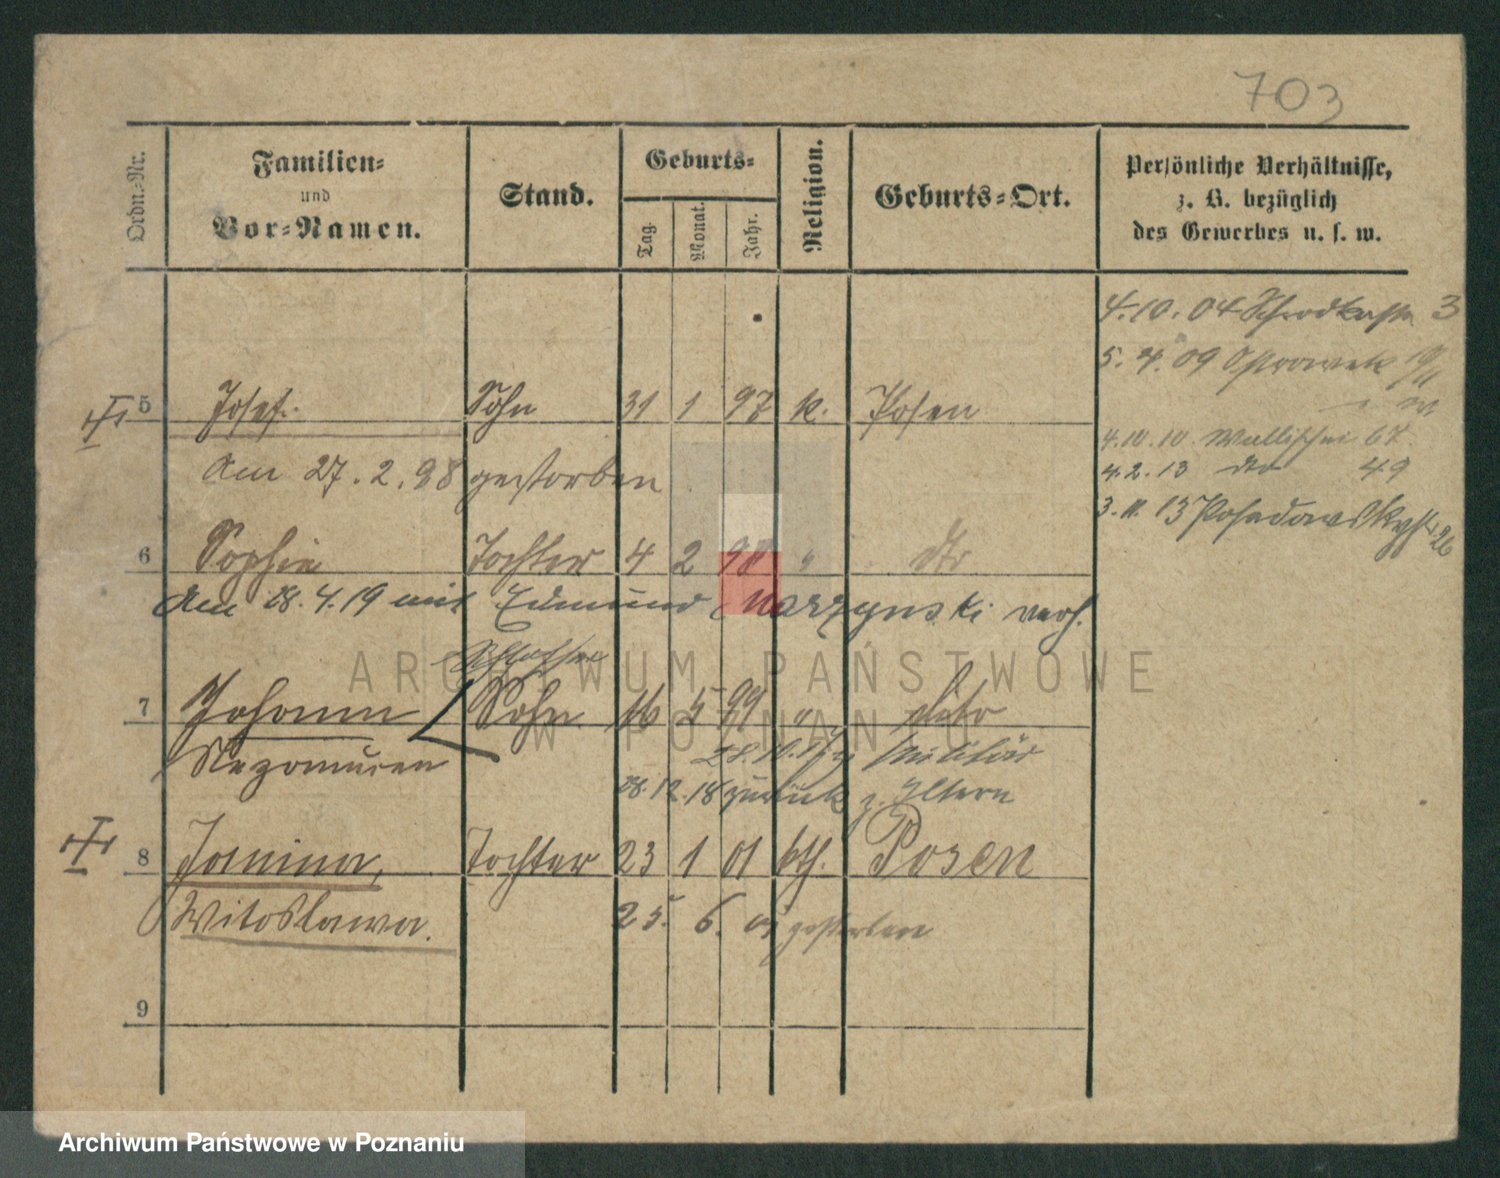 703
Ordn.-Nr.
Familien-
und
Vor-Namen.
Stand.
Geburts-
Tag.
Monat.
Jahr.
Religion.
Geburts-Ort.
Persönliche Verhältnisse,
z. B. bezüglich
des Gewerbes u. s. w.
4.10.04 Schrodkastr 3
5. 4. 09 Ostrowek 10/11
5 Josef. Sohn 31 1 97 k. Posen
4.10.10. Wallischei 67.
Am 27.2.98 gestorben
4.2.13 dto 49
3.11.13 Posadowskystr 26
6 Sophie Tochter 4 2 98 " dto
Am 28.4.19 mit Edmund verh.
Schlosser
7 Johann Sohn 16 5 99 " dto
Nepomucen
Militär
28.12.18 zurück z. Eltern
8 Janina, Tochter 23 1 01 kth. Posen
Witoslawa. 25. 6. gestorben
9
ARCHIWUM PAŃSTWOWE
W POZNANIU
Archiwum Państwowe w Poznaniu